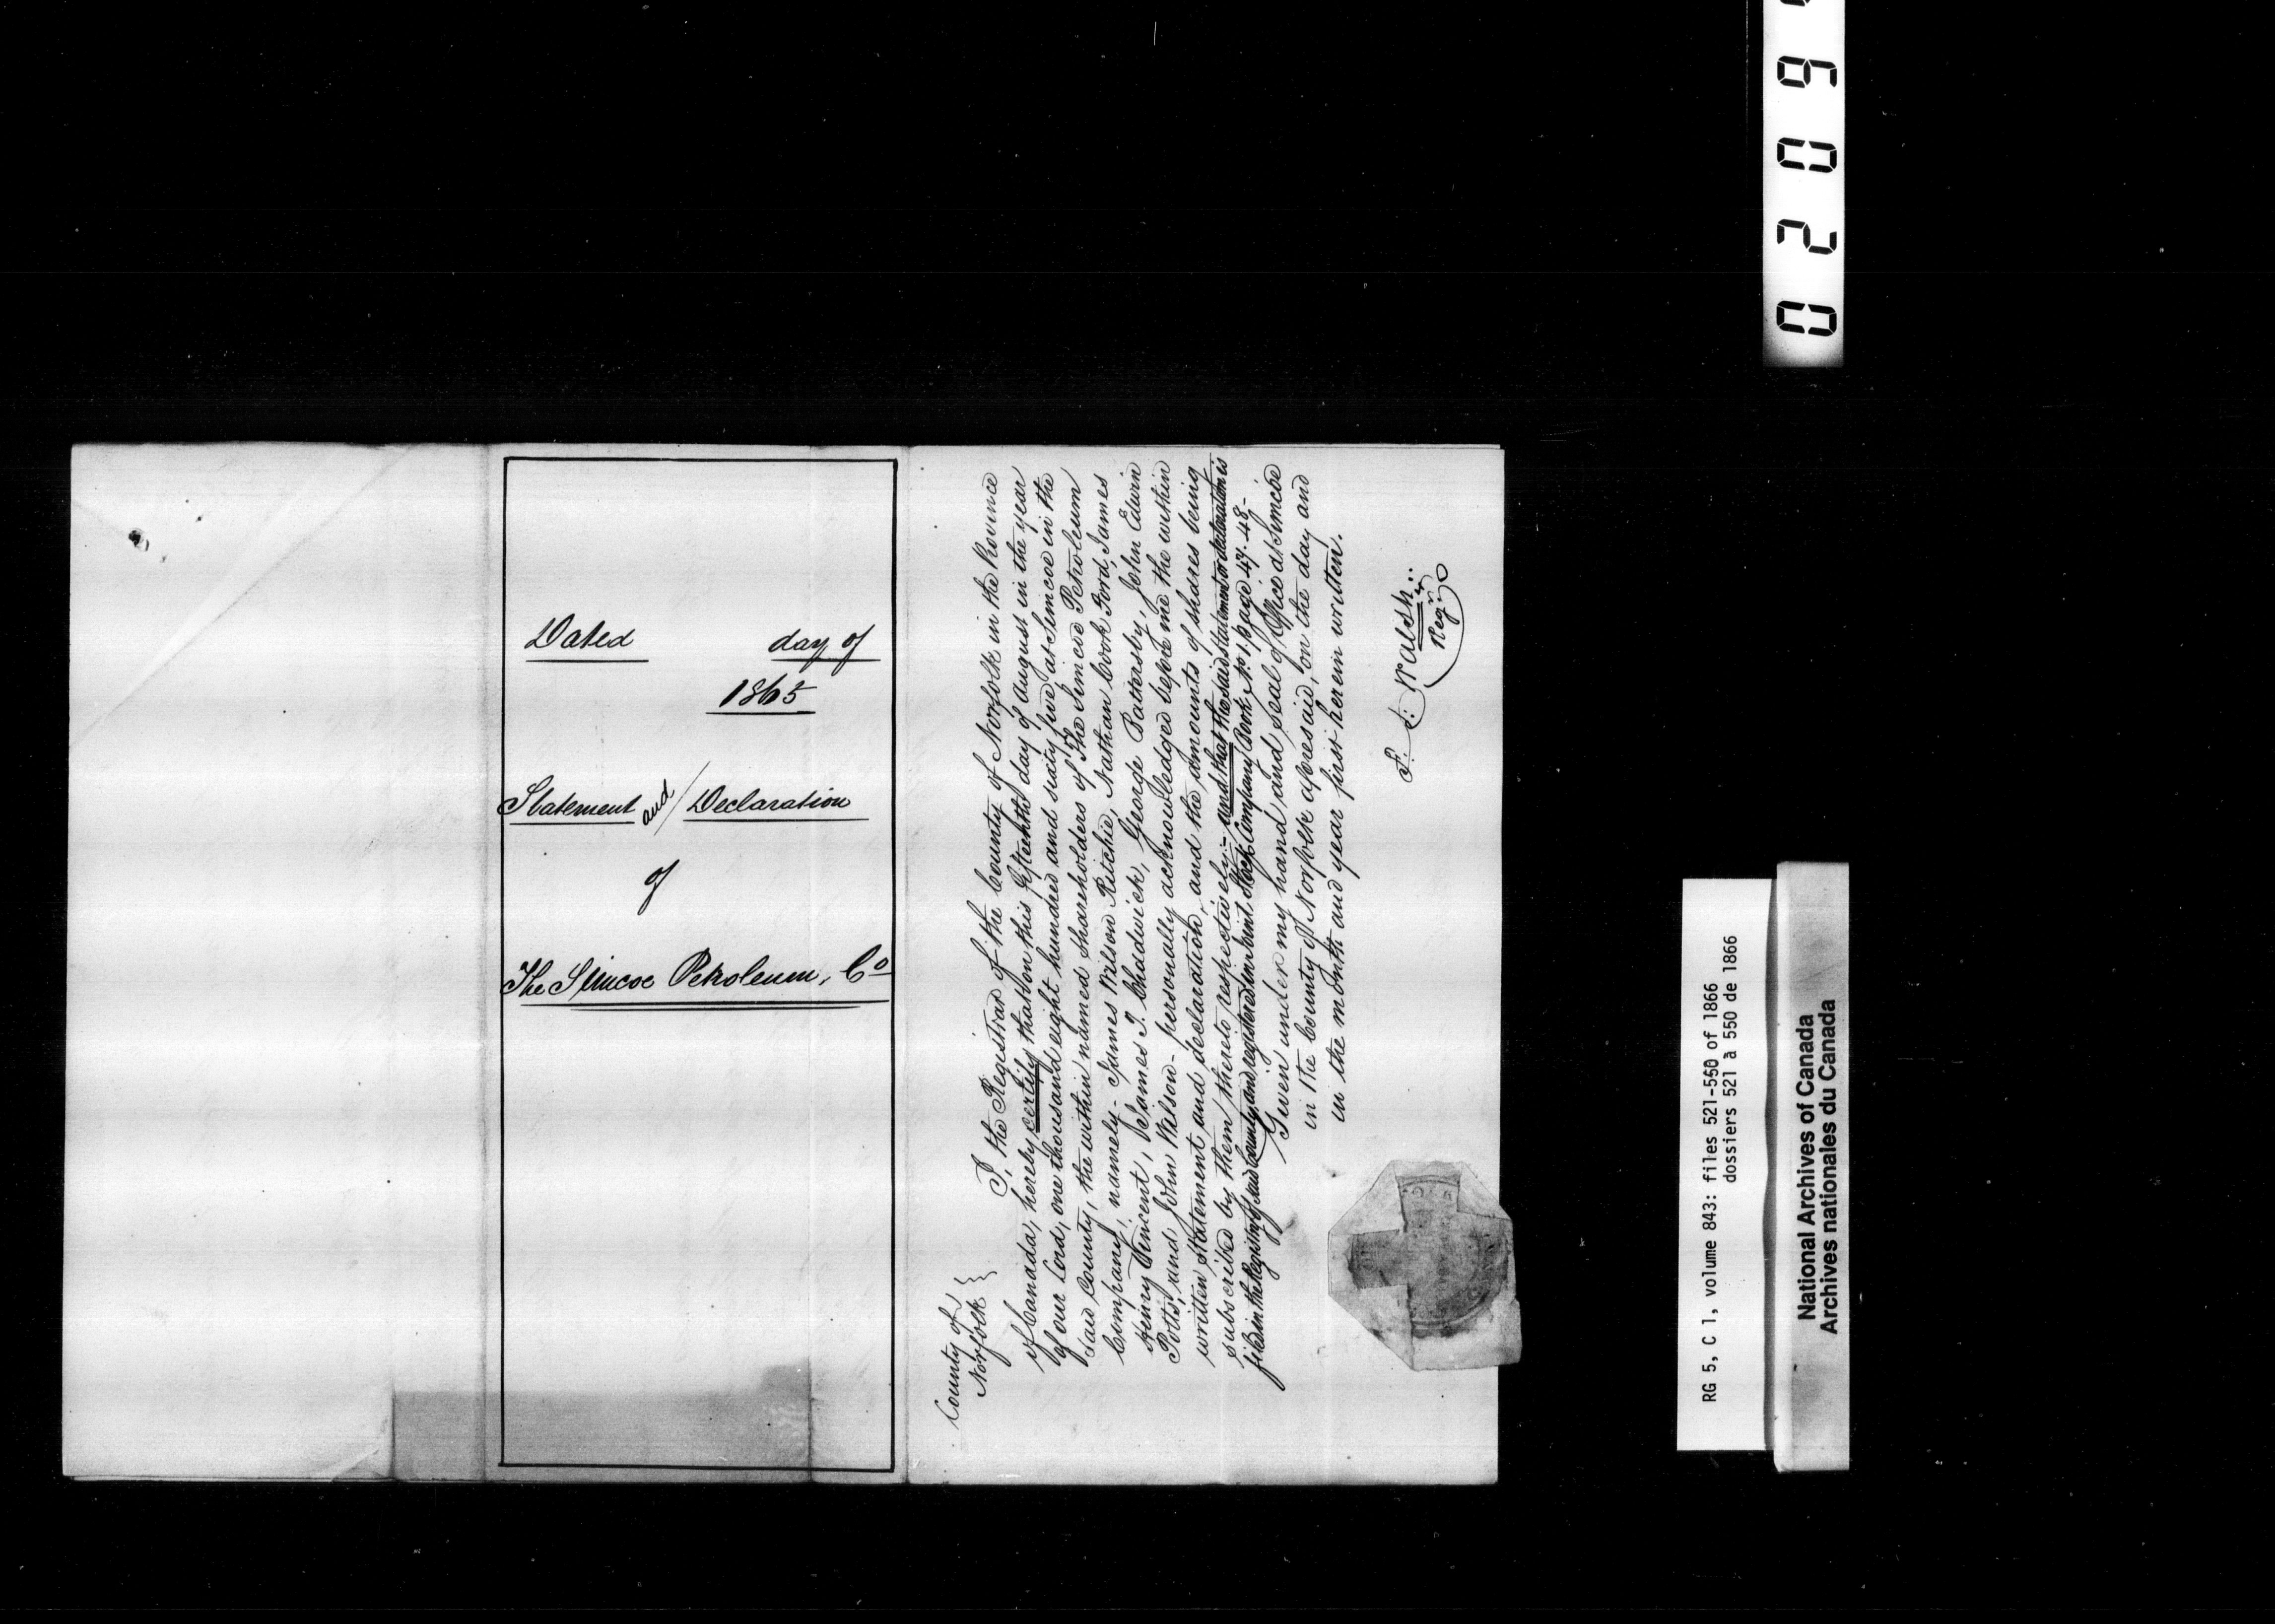 Dated day of
1865
Statement and / Declaration
of
The Simcoe Petroleum, Co
County of
Norfolk
I, the Registrar of the County of Norfolk in the Province
of Canada, hereby certify that on this fifteenth day of August in the year
of our Lord, one thousand eight hundred and sixty five at Simcoe in the
said County, the within named Shareholders of "The Simcoe Petroleum
Company", namely - James Wilson Ritchie, Nathan Cook Ford, James
Henry Vincent, James I. Chadwick, George Battersby, John Edwin
Potts, and John Wilson - personally acknowledged before me the within
written Statement and declaration, and the amounts of shares being
subscribed by them thereto respectively:- and that the said Statement or declaration is
filed in the Registry of said County and registered in Joint Stock Company Book No 1 page 47.48-
Given under my hand and Seal of Office at Simcoe
in the County of Norfolk aforesaid, on the day and
in the month and year first herein written.
F. L. Walsh:
Regr
0 2 0 9
RG 5, C 1, volume 843: files 521-550 of 1866
dossiers 521 à 550 de 1866
National Archives of Canada
Archives nationales du Canada